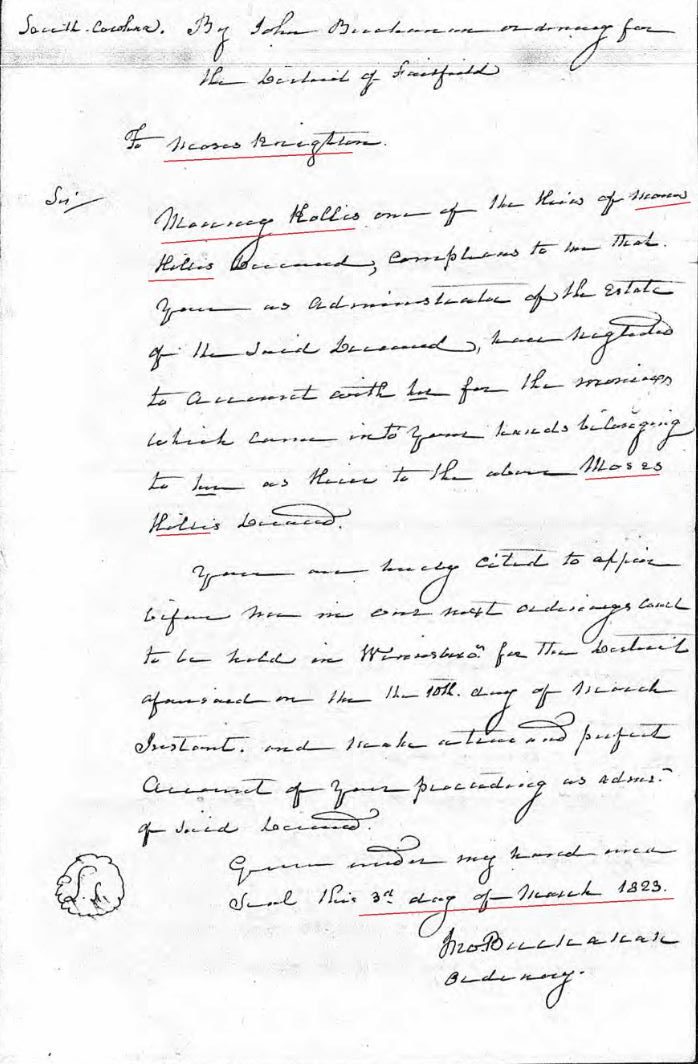 South-Carolina. By John Buchanan ordinary for
the District of Fairfield
To Moses Knighton.
Sir
Mourney Hollis one of the Heirs of Moses
Hollis Deceased, complains to me that
you as Administrator of the Estate
of the Said Deceased, have neglected
to account with her for the monies
which came into your hands belonging
to her as Heir to the above Moses
Hollis Deceased.
You are hereby cited to appear
before me in our next ordinarys court
to be held in Winnsboro for the District
aforesaid on the the 10th. day of March
Instant. and make a true and perfect
Account of your proceeding as admr.
of Said Deceased.
Given under my hand and
Seal this 3d day of March 1823.
L.S.
Jno Buchanan
Ordinary.